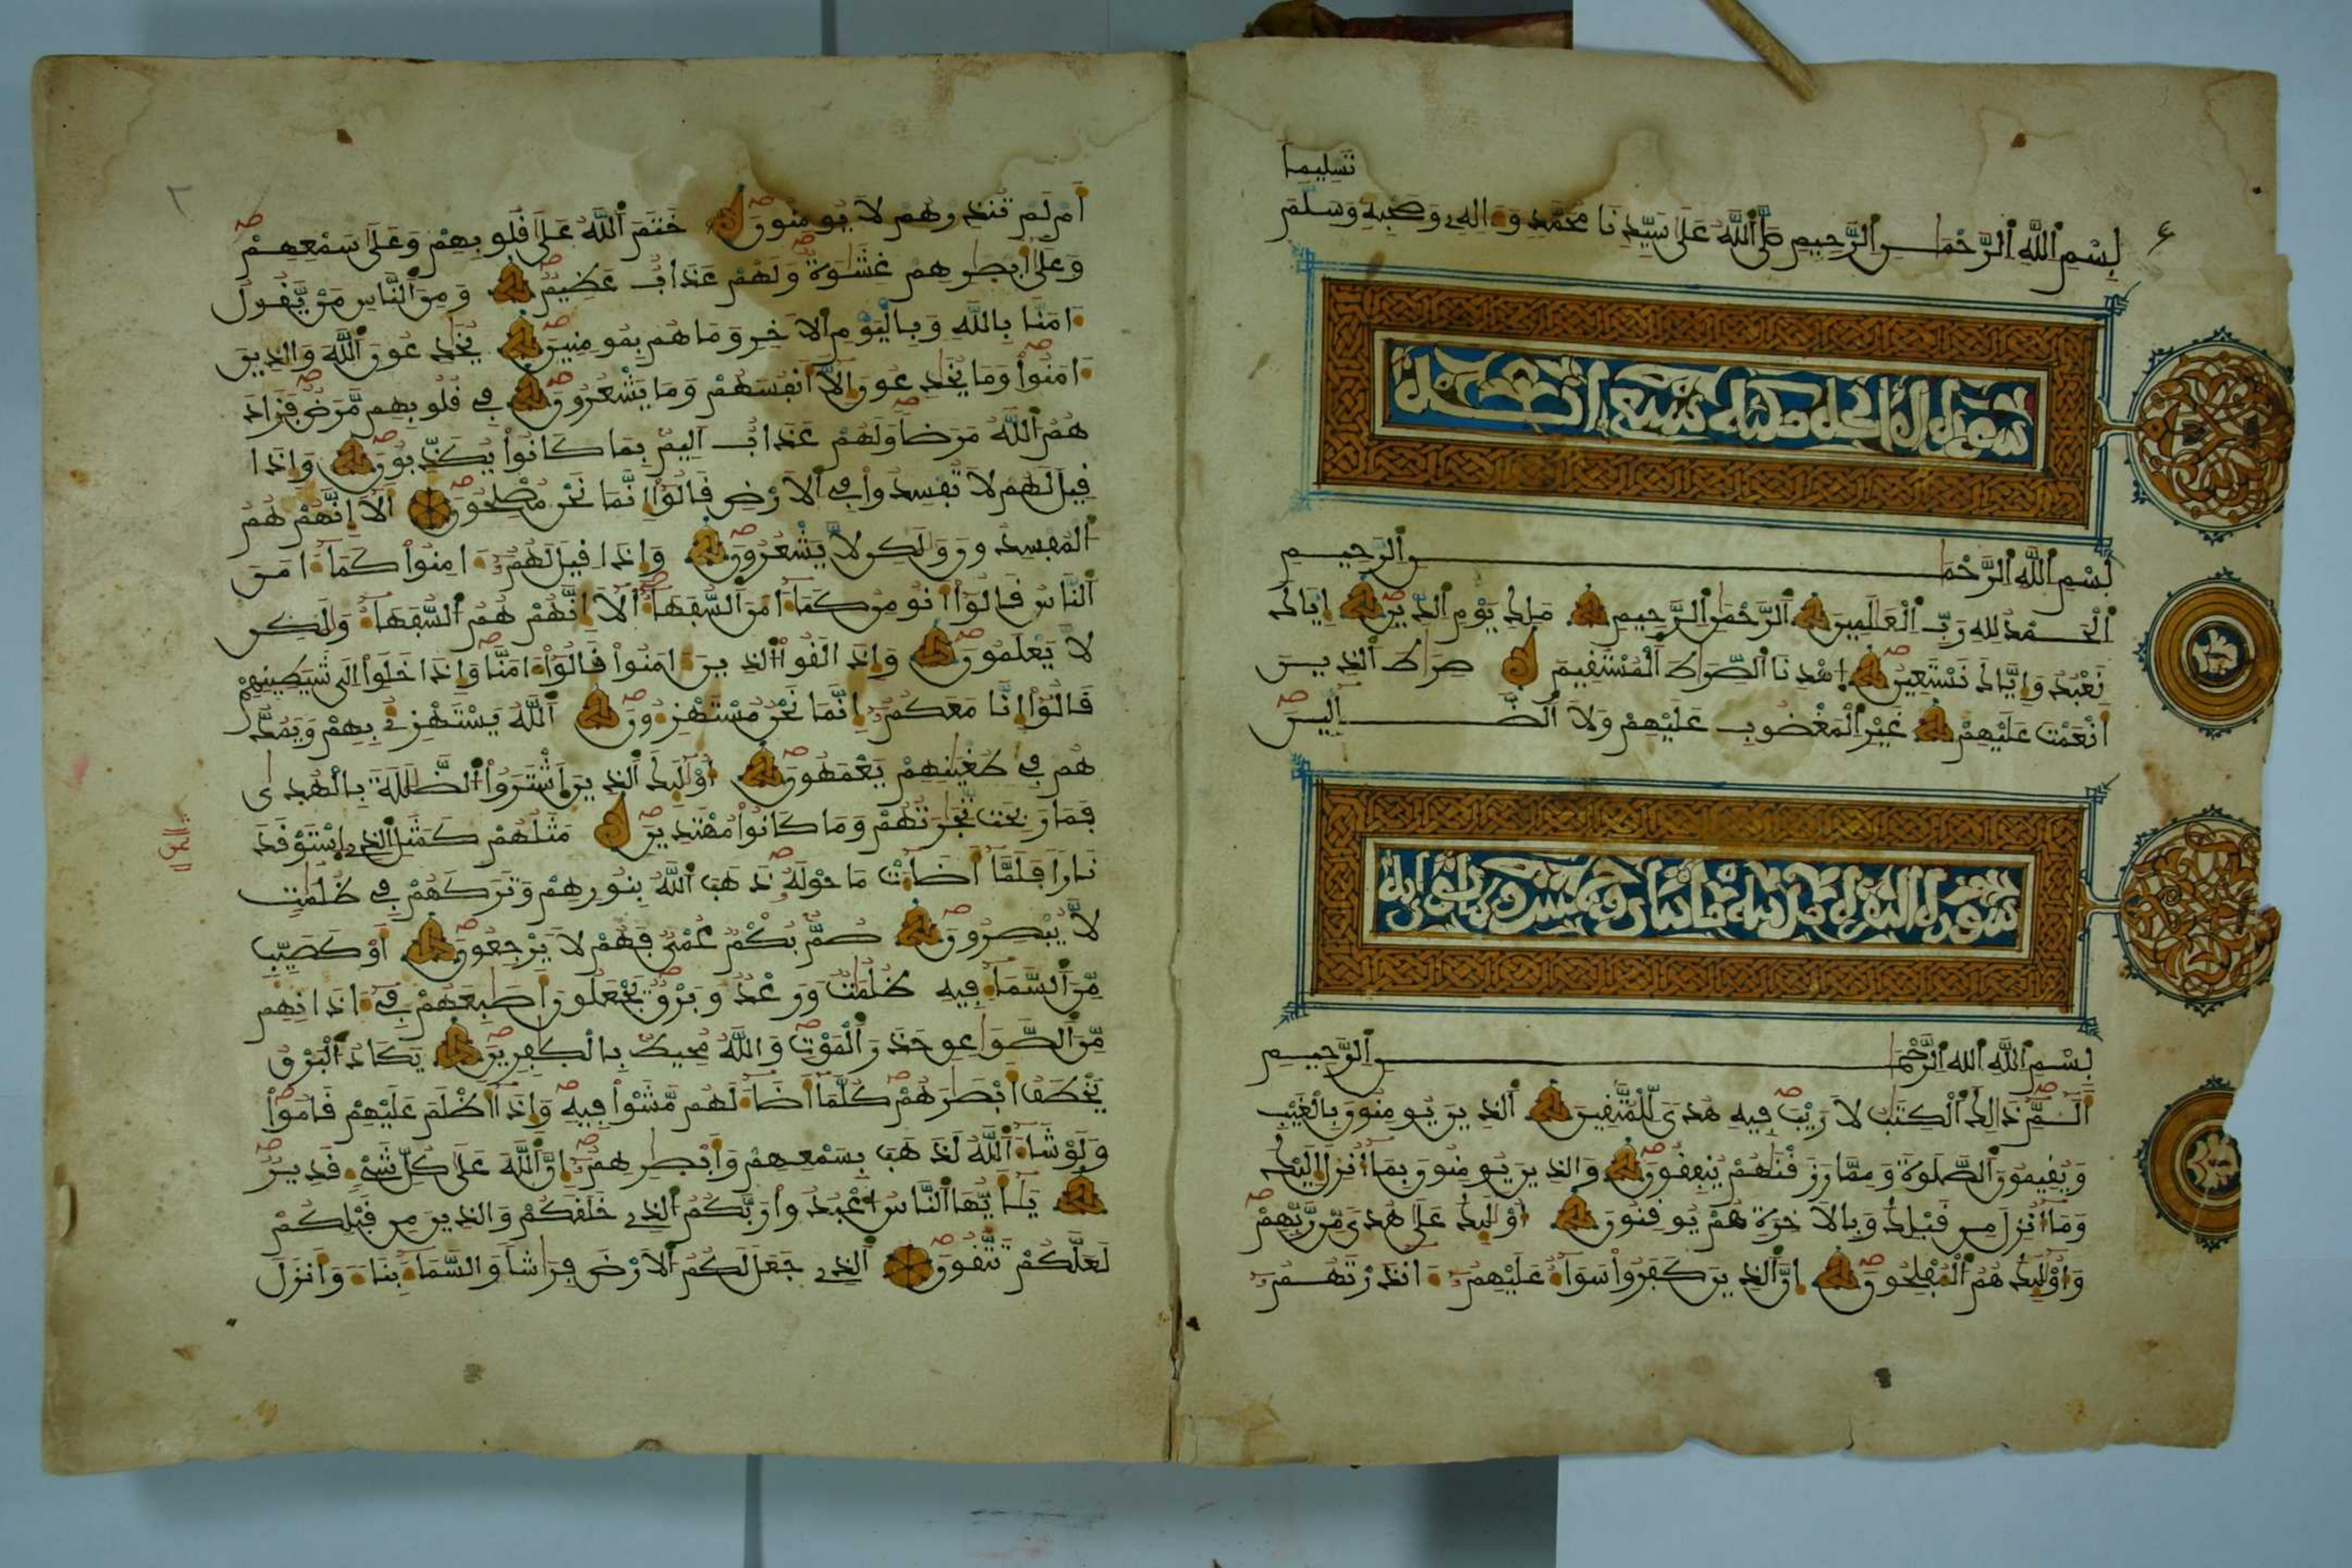 تَسْلِيماً
بِسْمِ اللَّهِ الرَّحْمٰنِ الرَّحِيمِ صَلَّى اللَّهُ عَلَى سَيِّدِنَا مُحَمَّدٍ وَءَالِهِ وَصَحْبِهِ وَسَلَّمَ
بِسْمِ اللَّهِ الرَّحْمٰنِ الرَّحِيمِ
الْحَمْدُ لِلهِ رَبِّ الْعَٰلَمِينَ الرَّحْمٰنِ الرَّحِيمِ مَلِكِ يَوْمِ الدِّينِ إِيَّاكَ
نَعْبُدُ وَإِيَّاكَ نَسْتَعِينُ اهْدِنَا الصِّرَٰطَ الْمُسْتَقِيمَ صِرَٰطَ الذِينَ
أَنْعَمْتَ عَلَيْهِمْ غَيْرِ الْمَغْضُوبِ عَلَيْهِمْ وَلَا الضَّالِّينَ
سورة البقرة
بِسْمِ اللَّهِ الله الرَّحْمٰنِ الرَّحِيمِ
أَلَمِّ ذَٰلِكَ الْكِتَٰبُ لَا رَيْبَ فِيهِ هُدىً لِّلْمُتَّقِينَ الذِينَ يُومِنُونَ بِالْغَيْبِ
وَيُقِيمُونَ الصَّلَوٰةَ وَمِمَّا رَزَقْنَٰهُمْ يُنفِقُونَ وَالذِينَ يُومِنُونَ بِمَا أُنزِلَ إِلَيْكَ
وَمَا أُنزِلَ مِن قَبْلِكَ وَبِالَاخِرَةِ هُمْ يُوقِنُونَ أُوْلَٰئِكَ عَلَىٰ هُدىً مِّن رَّبِّهِمْ
وَأُوْلَٰئِكَ هُمُ الْمُفْلِحُونَ إِنَّ الذِينَ كَفَرُواْ سَوَآءٌ عَلَيْهِمْ ءَانذَرْتَهُمْ
أَمْ لَمْ تُنذِرْهُمْ لَا يُومِنُونَ خَتَمَ اللَّهُ عَلَىٰ قُلُوبِهِمْ وَعَلَىٰ سَمْعِهِمْ
وَعَلَىٰ أَبْصٰرِهِمْ غِشَٰوَةٌ وَلَهُمْ عَذَابٌ عَظِيمٌ وَمِنَ النَّاسِ مَنْ يَّقُولُ
ءَامَنَّا بِاللَّهِ وَبِالْيَوْمِ الَاخِرِ وَمَا هُم بِمُومِنِينَ يُخَٰدِعُونَ اللَّهَ وَالذِينَ
ءَامَنُواْ وَمَا يُخَٰدِعُونَ إِلَّا أَنفُسَهُمْ وَمَا يَشْعُرُونَ فِي قُلُوبِهِم مَّرَضٌ فَزَادَ
هُمُ اللَّهُ مَرَضاً وَلَهُمْ عَذَابٌ أَلِيمٌ بِمَا كَانُواْ يُكَذِّبُونَ وَإِذَا
قِيلَ لَهُمْ لَا تُفْسِدُواْ فِي الَارْضِ قَالُواْ إِنَّمَا نَحْنُ مُصْلِحُونَ أَلَا إِنَّهُمْ هُمُ
الْمُفْسِدُونَ وَلَٰكِن لَّا يَشْعُرُونَ وَإِذَا قِيلَ لَهُمْ ءَامِنُواْ كَمَا ءَامَنَ
النَّاسُ قَالُواْ أَنُومِنُ كَمَا ءَامَنَ السُّفَهَآءُ أَلَا إِنَّهُمْ هُمُ السُّفَهَآءُ وَلَٰكِن
لَّا يَعْلَمُونَ وَإِذَا لَقُواْ الذِينَ ءَامَنُواْ قَالُواْ ءَامَنَّا وَإِذَا خَلَوِاْ إِلَىٰ شَيَٰطِينِهِمْ
قَالُواْ إِنَّا مَعَكُمْ إِنَّمَا نَحْنُ مُسْتَهْزِءُونَ اللَّهُ يَسْتَهْزِئُ بِهِمْ وَيَمُدُّ
هُمْ فِي طُغْيَٰنِهِمْ يَعْمَهُونَ أُوْلَٰئِكَ الذِينَ اشْتَرَوُاْ الضَّلَٰلَةَ بِالْهُدَىٰ
فَمَا رَبِحَت تِّجَٰرَتُهُمْ وَمَا كَانُواْ مُهْتَدِينَ مَثَلُهُمْ كَمَثَلِ الذِي اسْتَوْقَدَ
نَاراً فَلَمَّا أَضَآءَتْ مَا حَوْلَهُ ذَهَبَ اللَّهُ بِنُورِهِمْ وَتَرَكَهُمْ فِي ظُلُمَٰتٍ
لَّا يُبْصِرُونَ صُمٌّ بُكْمٌ عُمْيٌ فَهُمْ لَا يَرْجِعُونَ أَوْ كَصَيِّبٍ
مِّنَ السَّمَآءِ فِيهِ ظُلُمَٰتٌ وَرَعْدٌ وَبَرْقٌ يَجْعَلُونَ أَصَٰبِعَهُمْ فِي ءَاذَانِهِم
مِّنَ الصَّوَٰعِقِ حَذَرَ الْمَوْتِ وَاللَّهُ مُحِيطٌ بِالْكَٰفِرِينَ يَكَادُ الْبَرْقُ
يَخْطَفُ أَبْصَٰرَهُمْ كُلَّمَا أَضَآءَ لَهُم مَّشَوْاْ فِيهِ وَإِذَا أَظْلَمَ عَلَيْهِمْ قَامُواْ
وَلَوْ شَآءَ اللَّهُ لَذَهَبَ بِسَمْعِهِمْ وَأَبْصٰرِهِمْ إِنَّ اللَّهَ عَلَىٰ كُلِّ شَيْءٍ قَدِيرٌ
يَٰأَيُّهَا النَّاسُ اعْبُدُواْ رَبَّكُمُ الذِي خَلَقَكُمْ وَالذِينَ مِن قَبْلِكُمْ
لَعَلَّكُمْ تَتَّقُونَ الذِي جَعَلَ لَكُمُ الَارْضَ فِرَٰشاً وَالسَّمَآءَ بِنَآءً وَأَنزَلَ